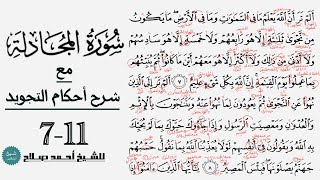 سُورَةُ المُجَادلة
مع
شرح أحكام التجويد
7-11
للشيخ أحمد صلاح
أَلَمْ تَرَ أَنَّ ٱللَّهَ يَعْلَمُ مَا فِى ٱلسَّمَٰوَٰتِ وَمَا فِى ٱلْأَرْضِ مَا يَكُونُ
مِن نَّجْوَىٰ ثَلَٰثَةٍ إِلَّا هُوَ رَابِعُهُمْ وَلَا خَمْسَةٍ إِلَّا هُوَ سَادِسُهُمْ
وَلَآ أَدْنَىٰ مِن ذَٰلِكَ وَلَآ أَكْثَرَ إِلَّا هُوَ مَعَهُمْ أَيْنَ مَا كَانُوا۟ ثُمَّ يُنَبِّئُهُم
بِمَا عَمِلُوا۟ يَوْمَ ٱلْقِيَٰمَةِ إِنَّ ٱللَّهَ بِكُلِّ شَىْءٍ عَلِيمٌ ٧ أَلَمْ تَرَ إِلَى ٱلَّذِينَ
نُهُوا۟ عَنِ ٱلنَّجْوَىٰ ثُمَّ يَعُودُونَ لِمَا نُهُوا۟ عَنْهُ وَيَتَنَٰجَوْنَ بِٱلْإِثْمِ
وَٱلْعُدْوَٰنِ وَمَعْصِيَتِ ٱلرَّسُولِ وَإِذَا جَآءُوكَ حَيَّوْكَ بِمَا لَمْ يُحَيِّكَ
بِهِ ٱللَّهُ وَيَقُولُونَ فِىٓ أَنفُسِهِمْ لَوْلَا يُعَذِّبُنَا ٱللَّهُ بِمَا نَقُولُ حَسْبُهُمْ
جَهَنَّمُ يَصْلَوْنَهَا فَبِئْسَ ٱلْمَصِيرُ ٨ يَٰٓأَيُّهَا ٱلَّذِينَ ءَامَنُوٓا۟